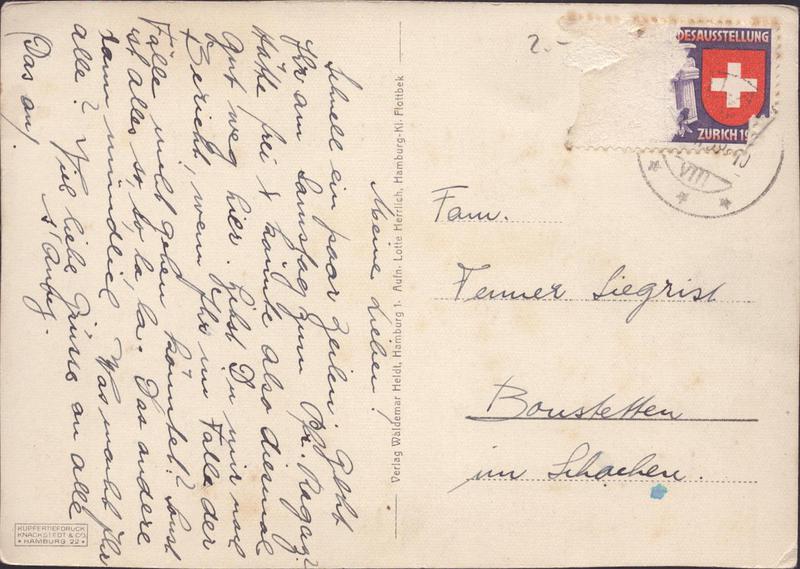 Meine Lieben!
Schnell ein paar Zeilen. Geht
Ihr am Samstag zum Pfr. Ragaz?
Hätte frei & könnte also diesmal
gut weg hier. Gibst Du mir noch
Bericht, wenn Ihr im Falle der
Fälle nicht gehen könntet? Sonst
ist alles so, so la, la. Das andere
dann mündlich. Was macht Ihr
alle? Viel liebe Grüsse an alle
Das an
Verlag Waldemar Heldt, Hamburg 1. Aufn. Lotte Herrlich, Hamburg-Kl. Flottbek
KUPFERTIEFDRUCK
KNACKSTEDT & CO.
• HAMBURG 22 •
2.-
DESAUSSTELLUNG
ZÜRICH 19
VIII
Fam.
Fenner Siegrist
Bonstetten
im Schachen.